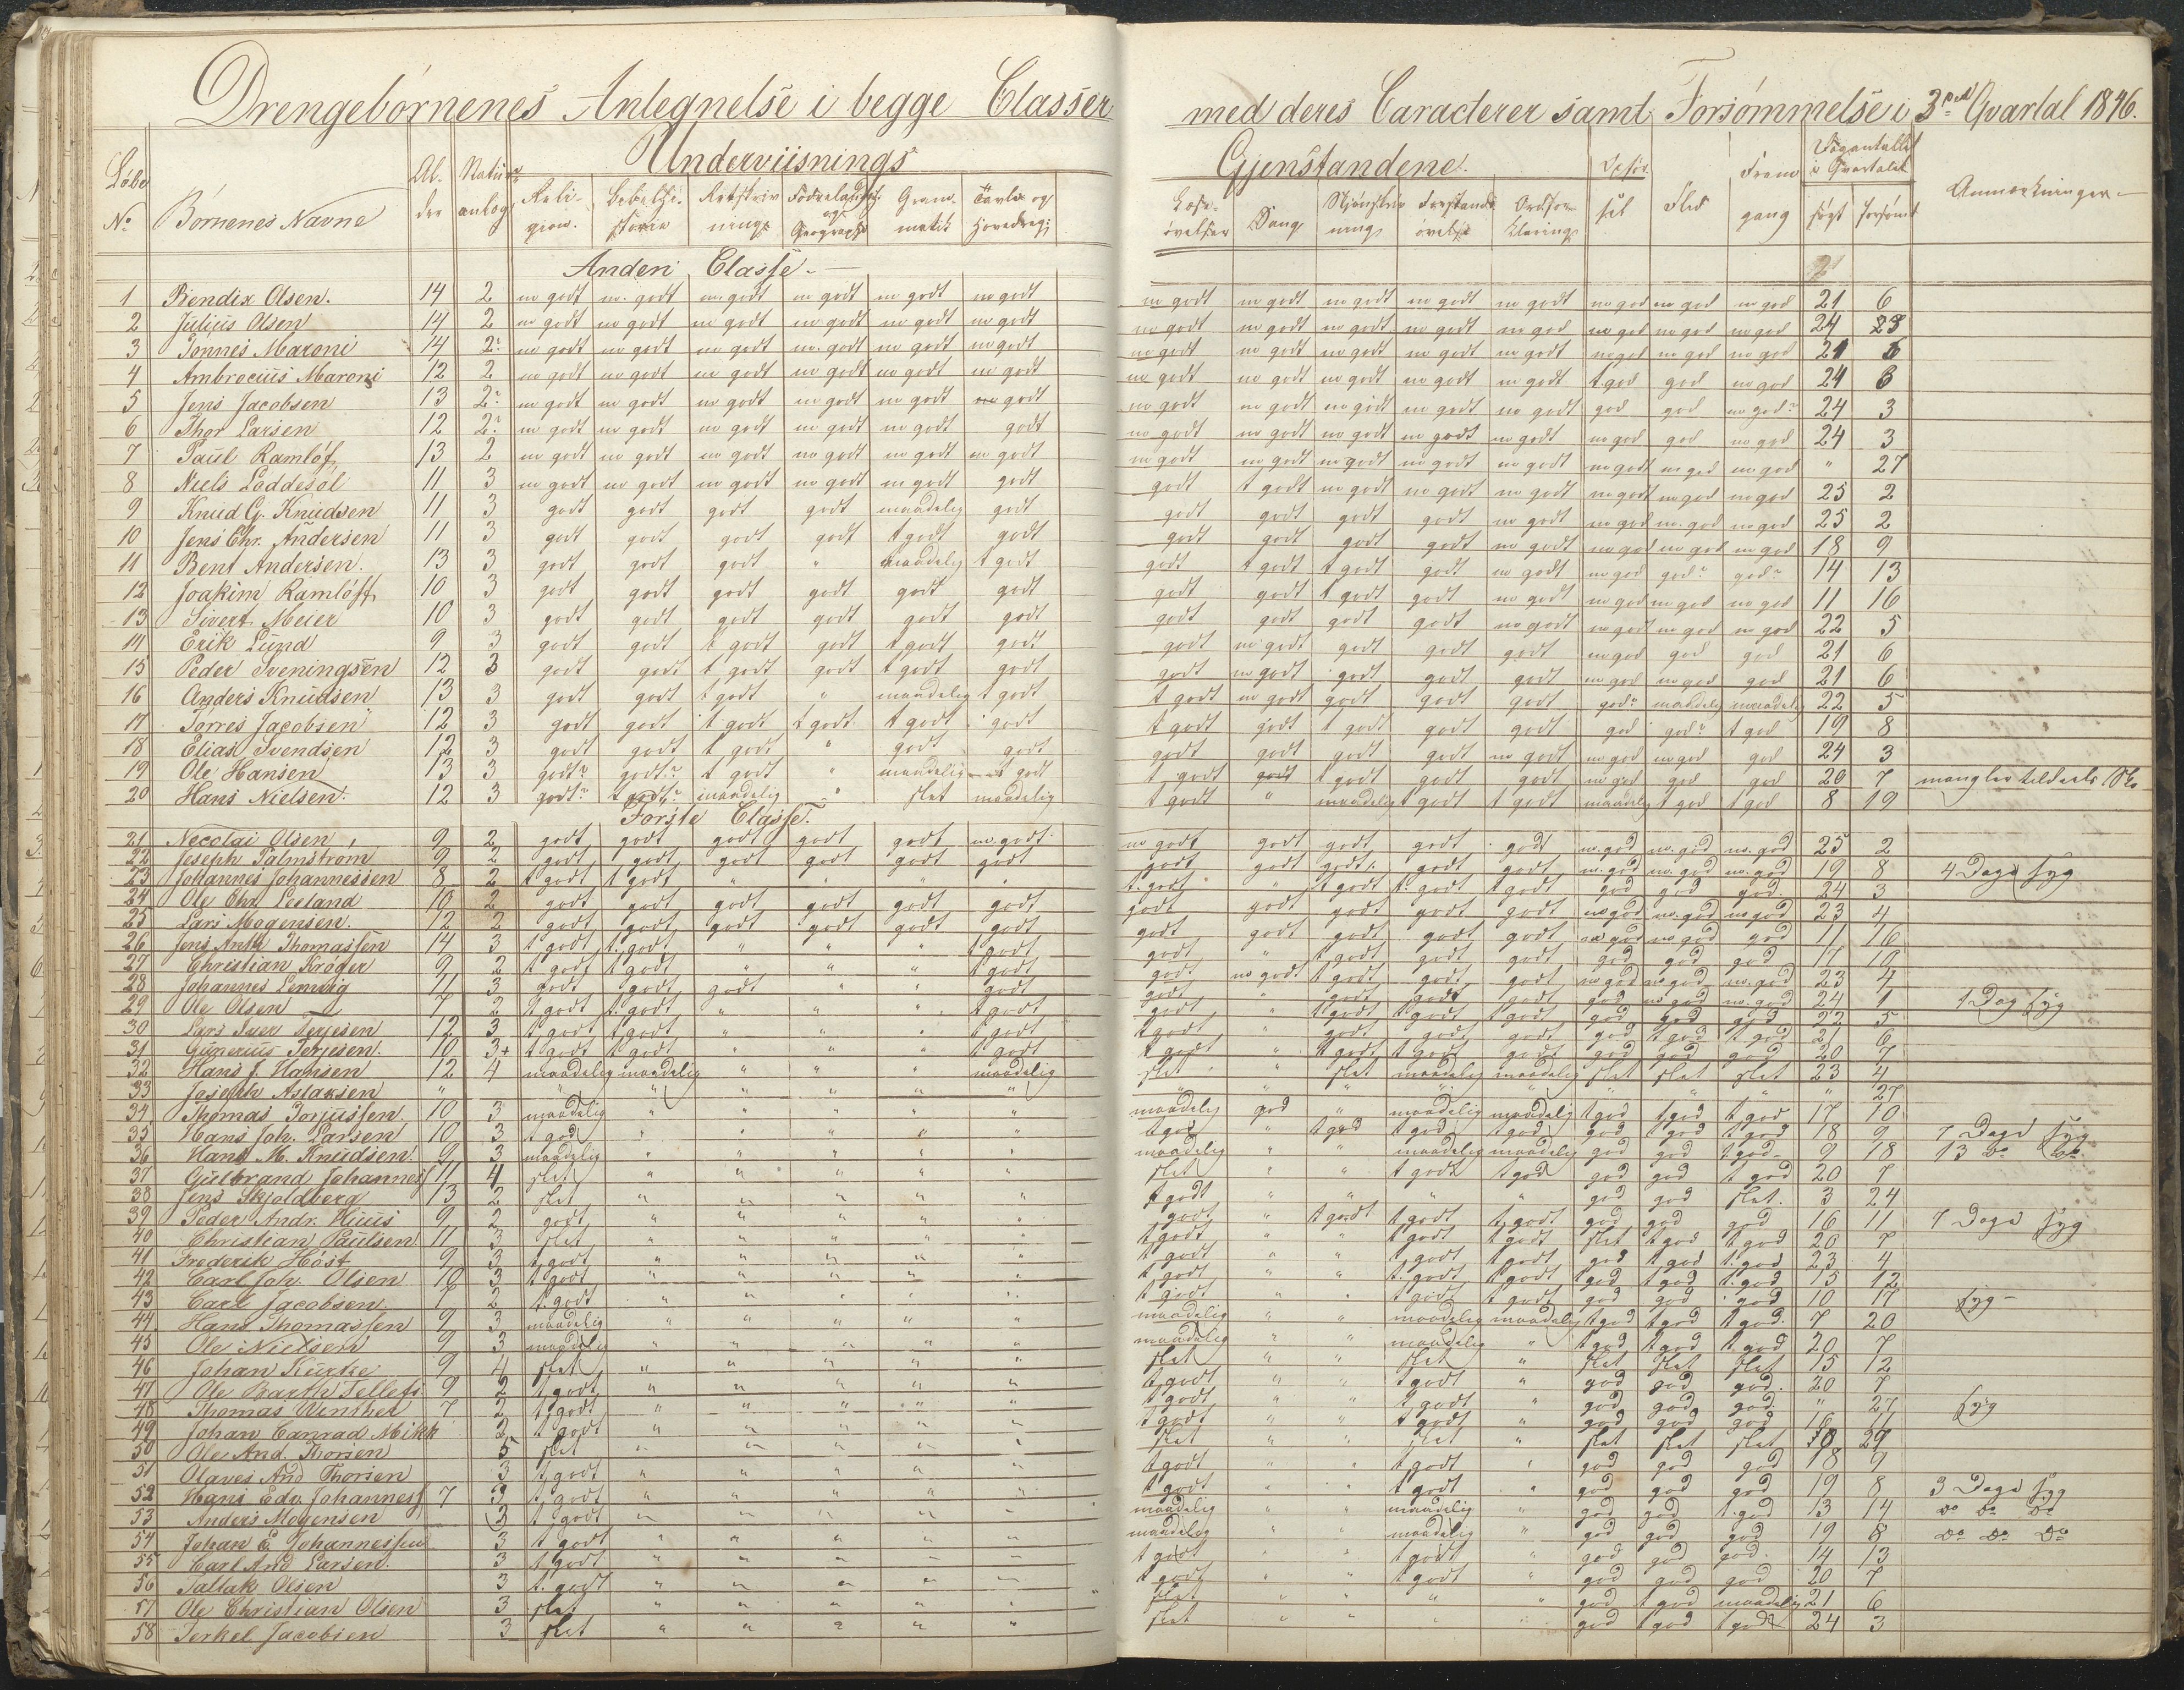 Drengebørnenes Antegnelse i begge Classer med deres Caracterer samt Forsømmelse i 3die Qvartal 1846.
Underviisnings Gjenstandene.
Løbe No Børnenes Navne Alder Naturanlæg Religion. Bibelhistorie Retskrivning Fædrelandsh. og Geographi Grammatik Tavle og Hovedregn Læseøvelser Sang Skjønskrivning Forstandsøvelse Ordforklaring Flid Fremgang Dagantallet i Qvartalet søgt forsømt Anmærkninger
Anden Classe
1 Bendix Olsen. 14 2 m godt m. godt m godt m godt m godt m godt m godt m godt m godt m godt m godt m god m god m god 21 6
2 Julius Olsen 14 2 m godt m godt m godt m godt m godt m godt m godt m godt m godt m godt m god m god m god m god 24
3 Tönnes Maroni 14 2 m godt m godt m godt m. godt m godt m godt m godt m godt m godt m godt m godt m god m god m god 21 6
4 Ambrocius Maroni 12 2 m godt m godt m godt m godt m godt m godt m godt m godt m godt m godt m godt t god god m god 24
5 Jens Jacobsen 13 2 m godt m godt m godt m godt m godt godt m godt m godt m godt m godt m godt god god m god 24 3
6 Thor Larsen 12 2 m godt m godt m godt m godt m godt godt m godt m godt m godt m godt m godt m god god m god 24 3
7 Paul Ramløf 13 2 m godt m godt m godt m godt m godt m godt m godt m godt m godt m godt m godt m godt m god m god " 27
8 Niels Løddesøl 11 3 m godt m godt m godt m godt m godt godt godt t godt m godt m godt m godt m godt m god m god 25 2
9 Knud G. Knudsen 11 3 godt godt godt godt maadelig godt godt godt godt godt m godt m god m. god m god 25 2
10 Jens Chr. Andersen 11 3 godt godt godt godt t godt godt godt godt godt godt m godt m god m god m god 18 9
11 Bent Andersen. 13 3 godt godt godt " maadelig t godt godt t godt t godt godt m godt m god god god 14 13
12 Joakim Ramløff 10 3 godt godt godt godt godt godt godt godt t godt godt m godt m god m god m god 11 16
13 Sivert Meier 10 3 godt godt godt godt godt godt godt godt godt godt m godt m godt m god m god 22 5
14 Erik Lund 9 3 godt godt t godt godt t godt godt godt m godt godt godt godt m god god god 21 6
15 Peder Sveningsen 12 3 godt godt t godt godt t godt godt godt m godt godt godt godt m god m god god 21 6
16 Anders Knudsen 13 3 godt godt t godt " maadelig t godt t godt m godt godt godt godt god maadelig maadelig 22 5
17 Torres Jacobsen 12 3 godt godt t godt t godt t godt godt t godt godt t godt godt godt god god t god 19 8
18 Elias Svendsen 12 3 godt godt t godt " godt godt godt godt godt godt m godt m god m god god 24 3
19 Ole Hansen 13 3 godt godt t godt " maadelig t godt t godt godt t godt godt godt m god god god 20 7 mangler tildeels
20 Hans Nielsen. 12 3 godt t godt maadelig " slet maadelig t godt " maadelig t godt t godt maadelig t god t god 8 19
Første Classe.
21 Necolai Olsen 9 2 godt godt godt godt godt m. godt m godt godt godt godt godt m. god m. god m. god 25 2
22 Joseph Palmstrøm 9 2 godt godt godt godt godt godt godt godt godt godt godt m. god m. god m. god 19 8 4 Dage syg
23 Johannes Johannessen 8 2 t godt t godt " " " " t. godt " t godt t. godt t godt god god god. 24 3
24 Ole Chr. Leeland 10 2 godt godt godt godt godt godt godt godt godt godt godt m god m. god m god 23 4
25 Lars Mogensen. 12 2 godt godt godt godt godt godt godt godt godt godt godt m god m god god 11 16
26 Jens Anth Thomassen 14 3 t godt t. godt " " " t godt godt " t godt godt godt god god god 17 10
27 Christian Krøger 9 2 t godt t godt " " " t godt godt m godt t godt godt godt m god m god m. god 23 4
28 Johannes Lemvig 11 3 godt godt godt " " godt godt " godt godt godt god m god m. god 24 1 1 Dag syg
29 Ole Olsen 7 2 t godt t. godt " " " t godt godt " t godt t godt t godt god god god 22 5
30 Lars Iver Terjesen 12 3 t godt t godt " " " t godt t godt " godt godt godt god t god t god 21 6
31 Gunerius Terjesen. 10 3+ t godt t godt " " " t godt t godt " t godt t godt godt god god god 20 7
32 Hans J. Hansen 12 4 maadelig maadelig " " " maadelig slet " slet maadelig maadelig slet slet slet 23 4
33 Joseph Aslaksen " " " " " " " " " " " " " " 27
34 Thomas Torjussen 10 3 maadelig " " " " " maadelig god " maadelig maadelig t god t god t god 17 10
35 Hans Joh. Larsen 10 3 t god " " " " " t god " t god t god t god god t god t god 18 9 7 Dage syg
36 Hans M. Knudsen 9 3 maadelig " " " " " maadelig " " maadelig maadelig god god t god 9 18 13 do do
37 Gulbrand Johannes 11 4 slet " " " " " slet " " t godt t god god god t god 20 7
38 Jens Skjoldberg 13 2 slet " " " " " t godt " " " " god god slet. 3 24
39 Peder Andr. Huus 9 2 godt " " " " " t godt " t godt t godt t godt god god god 16 11 7 Dage syg
40 Christian Paulsen 11 3 slet " " " " " t godt " " t godt t godt slet t god t god 20 7
41 Frederik Høst 9 3 t godt " " " " " t godt " " t godt t godt god t god t. god 23 4
42 Carl Joh. Olsen 10 3 t godt " " " " " t godt " " t. godt t godt t god t god t. god 15 12
43 Carl Jacobsen 2 t. godt " " " " " t godt " " t godt t godt god god god 10 17 syg
44 Hans Thomassen 9 3 maadelig " " " " " maadelig " " maadelig maadelig t god t god t god. 7 20
45 Ole Nielsen 9 3 maadelig " " " " " maadelig " " maadelig " t god t god t god 20 7
46 Johan 9 4 slet " " " " " slet " " slet " slet slet slet 15 12
47 Ole Barth Tellefs. 9 2 t godt " " " " " t godt " " t godt " god god god. 20 7
48 Thomas Winther 7 2 t godt " " " " " t godt " " t godt " god god god " 27 syg
49 Johan Conrad Mikk 2 t godt " " " " " t godt " " t godt " god god god 16 11
50 Ole And. Thorsen 5 slet " " " " " slet " " slet " slet slet slet
51 Olaves And Thorsen 3 t godt " " " " " t godt " " t godt " god god god 18 9
52 Hans Edv. Johanness 7 3 t godt " " " " " t godt " " t godt " god god god 19 8 3 Dage syg
53 Anders Mogensen 3 t godt " " " " " maadelig " " maadelig " god god t. god 13 14 do do do
54 Johan E Johannessen 3 t godt " " " " " maadelig " " maadelig " god god god 19 8 do do do
55 Carl And Larsen. 3 t godt " " " " " t godt " " t godt " god god god. 14 13
56 Tallak Olsen 3 t. godt " " " " " t godt " " t godt " god god god 20 7
57 Ole Christian Olsen 3 slet " " " " " slet " " " " god t god maadelig 21 6
58 Terkel Jacobsen 3 slet " " " " " slet " " " " god t god t god 24 3